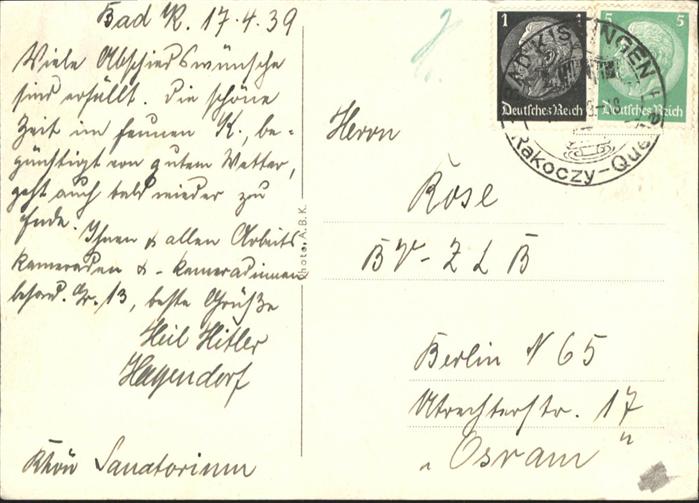 Bad K. 17.4.39
Viele Abschiedswünsche
sind erfüllt. Die schöne
Zeit im fernen K., be-
günstigt von gutem Wetter,
geht auch bald wieder zu
Ende. Ihnen & allen Arbeits
kameraden & -kameradinnen
besond. Gr. 13, beste Grüße
Heil Hitler
Hagendorf
Rhön Sanatorium
Photo. A.B.K.
1 1
Deutsches Reich
5 5
Deutsches Reich
BAD KISSINGEN
Rakoczy-Quelle
Herrn
Rose
BV-ZLB
Berlin N 65
Utrechterstr. 17
"Osram"